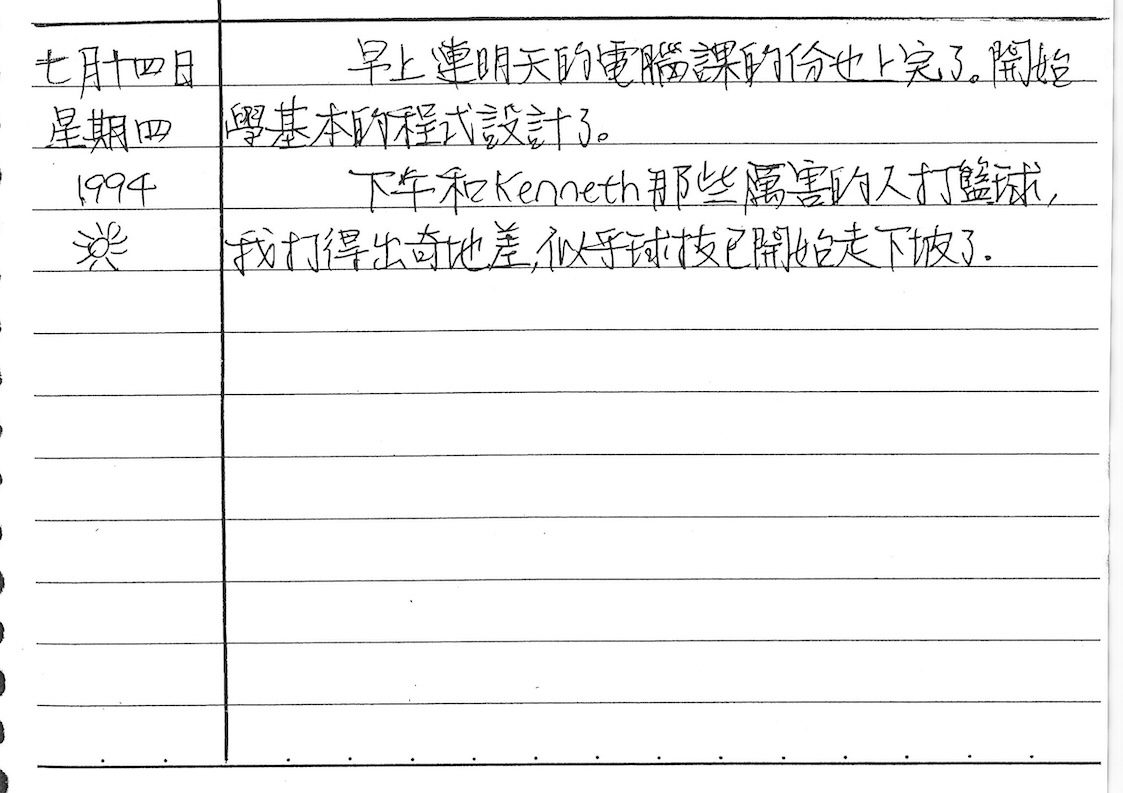 七月十四日
星期四
1994
早上連明天的電腦課的份也上完了。開始
學基本的程式設計了。
下午和Kenneth那些厲害的人打籃球,
我打得出奇地差,似乎球技已開始走下坡了.